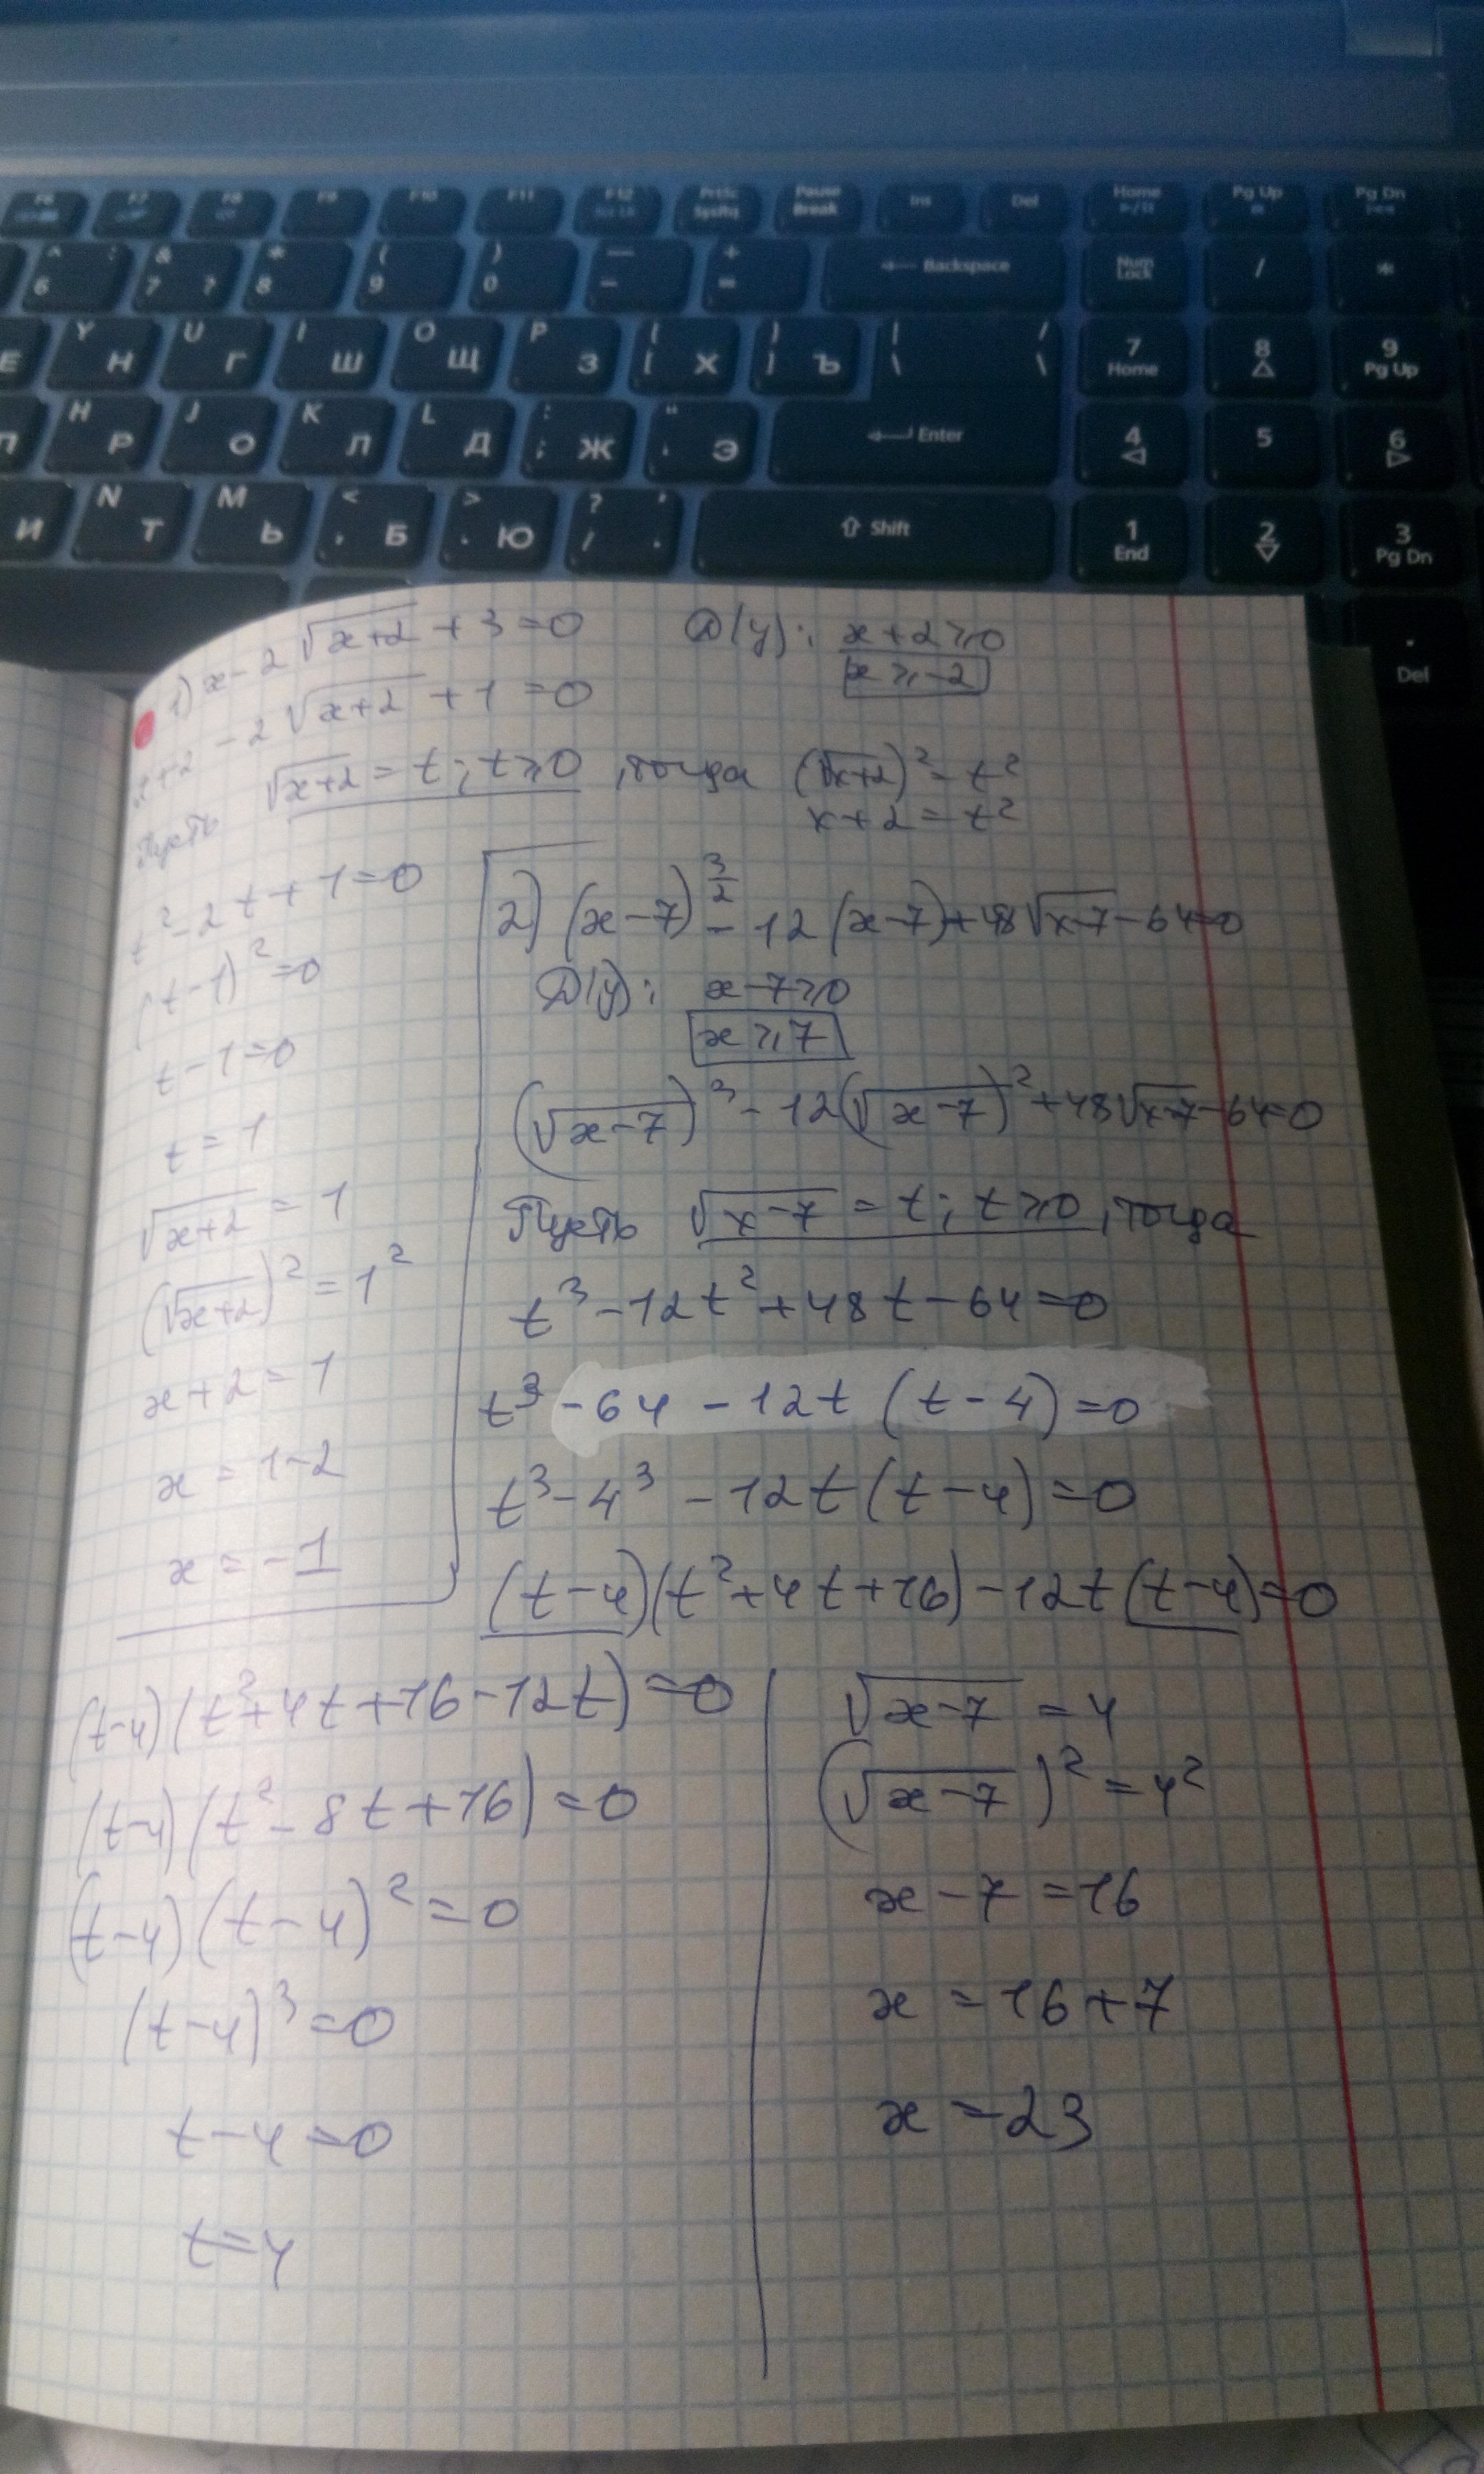 F6 F7 F8 F9 F10 F11 F12 PrtSc SysRq Pause Break Ins Del Home Pg Up Pg Dn
^ : 6 & 7 ? * 8 ( 9 ) 0 — - + = ← Backspace Num Lock / *
Е Y Н U Г I Ш O Щ P З { [ Х } ] Ъ | \ / \ 7 Home 8 9 Pg Up
П H Р J О K Л L Д : ; Ж " ' Э ← Enter 4 5 6
И N Т M Ь < , Б > . Ю ? / , . ⇧ Shift 1 End 2 3 Pg Dn
. Del
1) x - 2√(x+2) + 3 = 0 D(y): x+2 ≥ 0
x ≥ -2
x+2 - 2√(x+2) + 1 = 0
Пусть √(x+2) = t; t ≥ 0, тогда (√(x+2))² = t²
x+2 = t²
t² - 2t + 1 = 0
(t-1)² = 0
t - 1 = 0
t = 1
√(x+2) = 1
(√(x+2))² = 1²
x + 2 = 1
x = 1 - 2
x = -1
2) (x-7)^(3/2) - 12(x-7) + 48√(x-7) - 64 = 0
D(y): x-7 ≥ 0
x ≥ 7
(√(x-7))³ - 12(√(x-7))² + 48√(x-7) - 64 = 0
Пусть √(x-7) = t; t ≥ 0, тогда
t³ - 12t² + 48t - 64 = 0
t³ - 64 - 12t(t-4) = 0
t³ - 4³ - 12t(t-4) = 0
(t-4)(t²+4t+16) - 12t(t-4) = 0
(t-4)(t²+4t+16-12t) = 0
(t-4)(t²-8t+16) = 0
(t-4)(t-4)² = 0
(t-4)³ = 0
t-4 = 0
t = 4
√(x-7) = 4
(√(x-7))² = 4²
x - 7 = 16
x = 16 + 7
x = 23